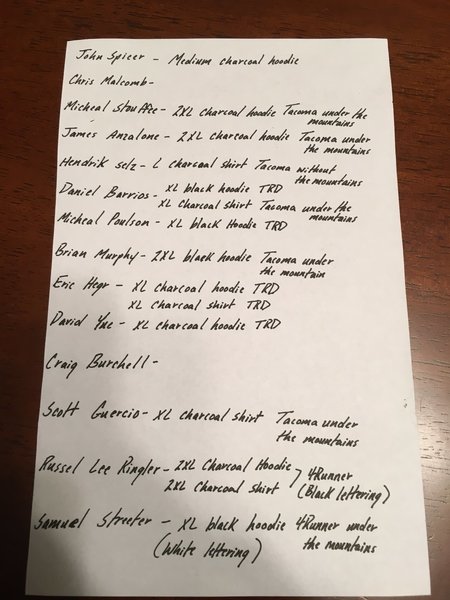 John Spicer - Medium charcoal hoodie
Chris Malcomb-
Micheal Stouffie - 2XL charcoal hoodie Tacoma under the mountains
James Anzalone - 2XL charcoal hoodie Tacoma under mountains
Hendrik selz - L charcoal shirt Tacoma without the mountains
Daniel Barrios - XL black hoodie TRD
XL Charcoal shirt Tacoma under the mountains
Micheal Poulson - XL black Hoodie TRD
Brian Murphy - 2XL black hoodie Tacoma under the mountain
Eric Hegr - XL charcoal hoodie TRD
XL charcoal shirt TRD
David Yue - XL charcoal hoodie TRD
Craig Burchell-
Scott Guercio - XL charcoal shirt Tacoma under the mountains
Russel Lee Ringler - 2XL Charcoal Hoodie 4Runner
2XL Charcoal shirt (Black lettering)
Samuel Streeter - XL black hoodie 4Runner under the mountains
(White lettering)